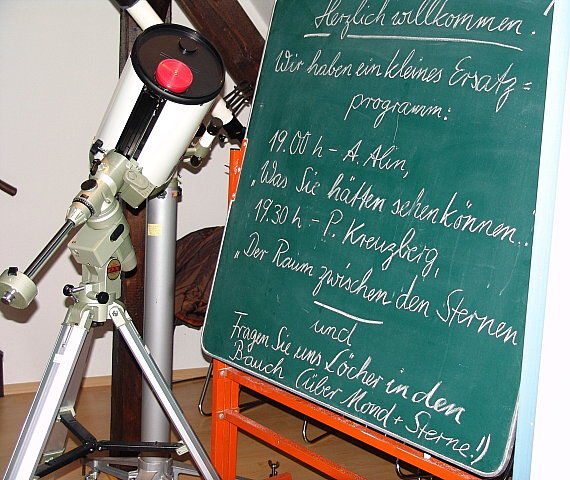 Herzlich willkommen.
Wir haben ein kleines Ersatz=
programm:
19.00 h - A. Alin,
„Was Sie hätten sehen können.“
19.30 h - P. Kreuzberg,
„Der Raum zwischen den Sternen
und
Fragen Sie uns Löcher in den
Bauch (über Mond + Sterne!)